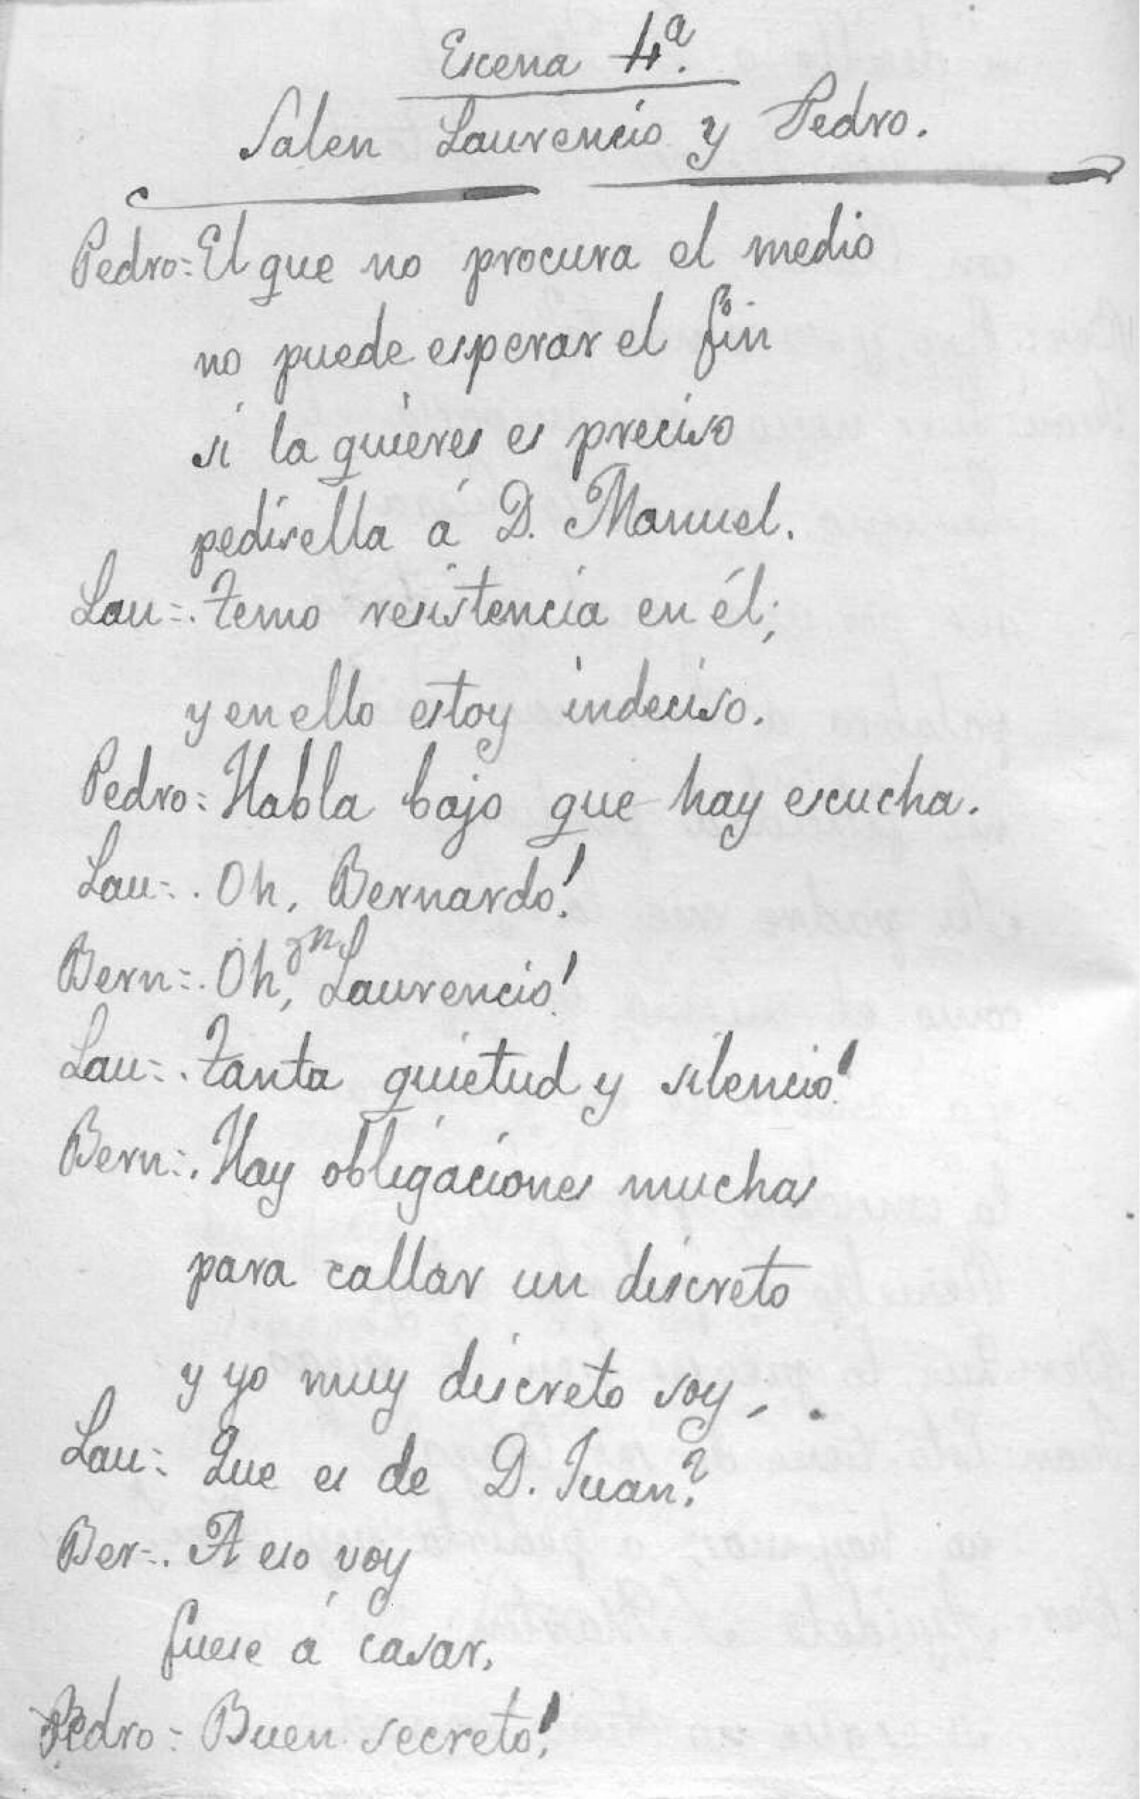 Escena 4ª.
Salen Laurencio y Pedro.
Pedro = El que no procura el medio
no puede esperar el fin
si la quieres es preciso
pedirella á D. Manuel.
Lau =. Temo resistencia en él;
y en ello estoy indeciso.
Pedro = Habla bajo que hay escucha.
Lau =. Oh, Bernardo!
Bern =. Oh, Sn Laurencio!
Lau =. Tanta quietud y silencio!
Bern =. Hay obligaciones muchas
para callar un discreto
y yo muy discreto soy.
Lau = Que es de D. Juan?
Ber =. A eso voy
fuese á casar.
Pedro = Buen secreto!